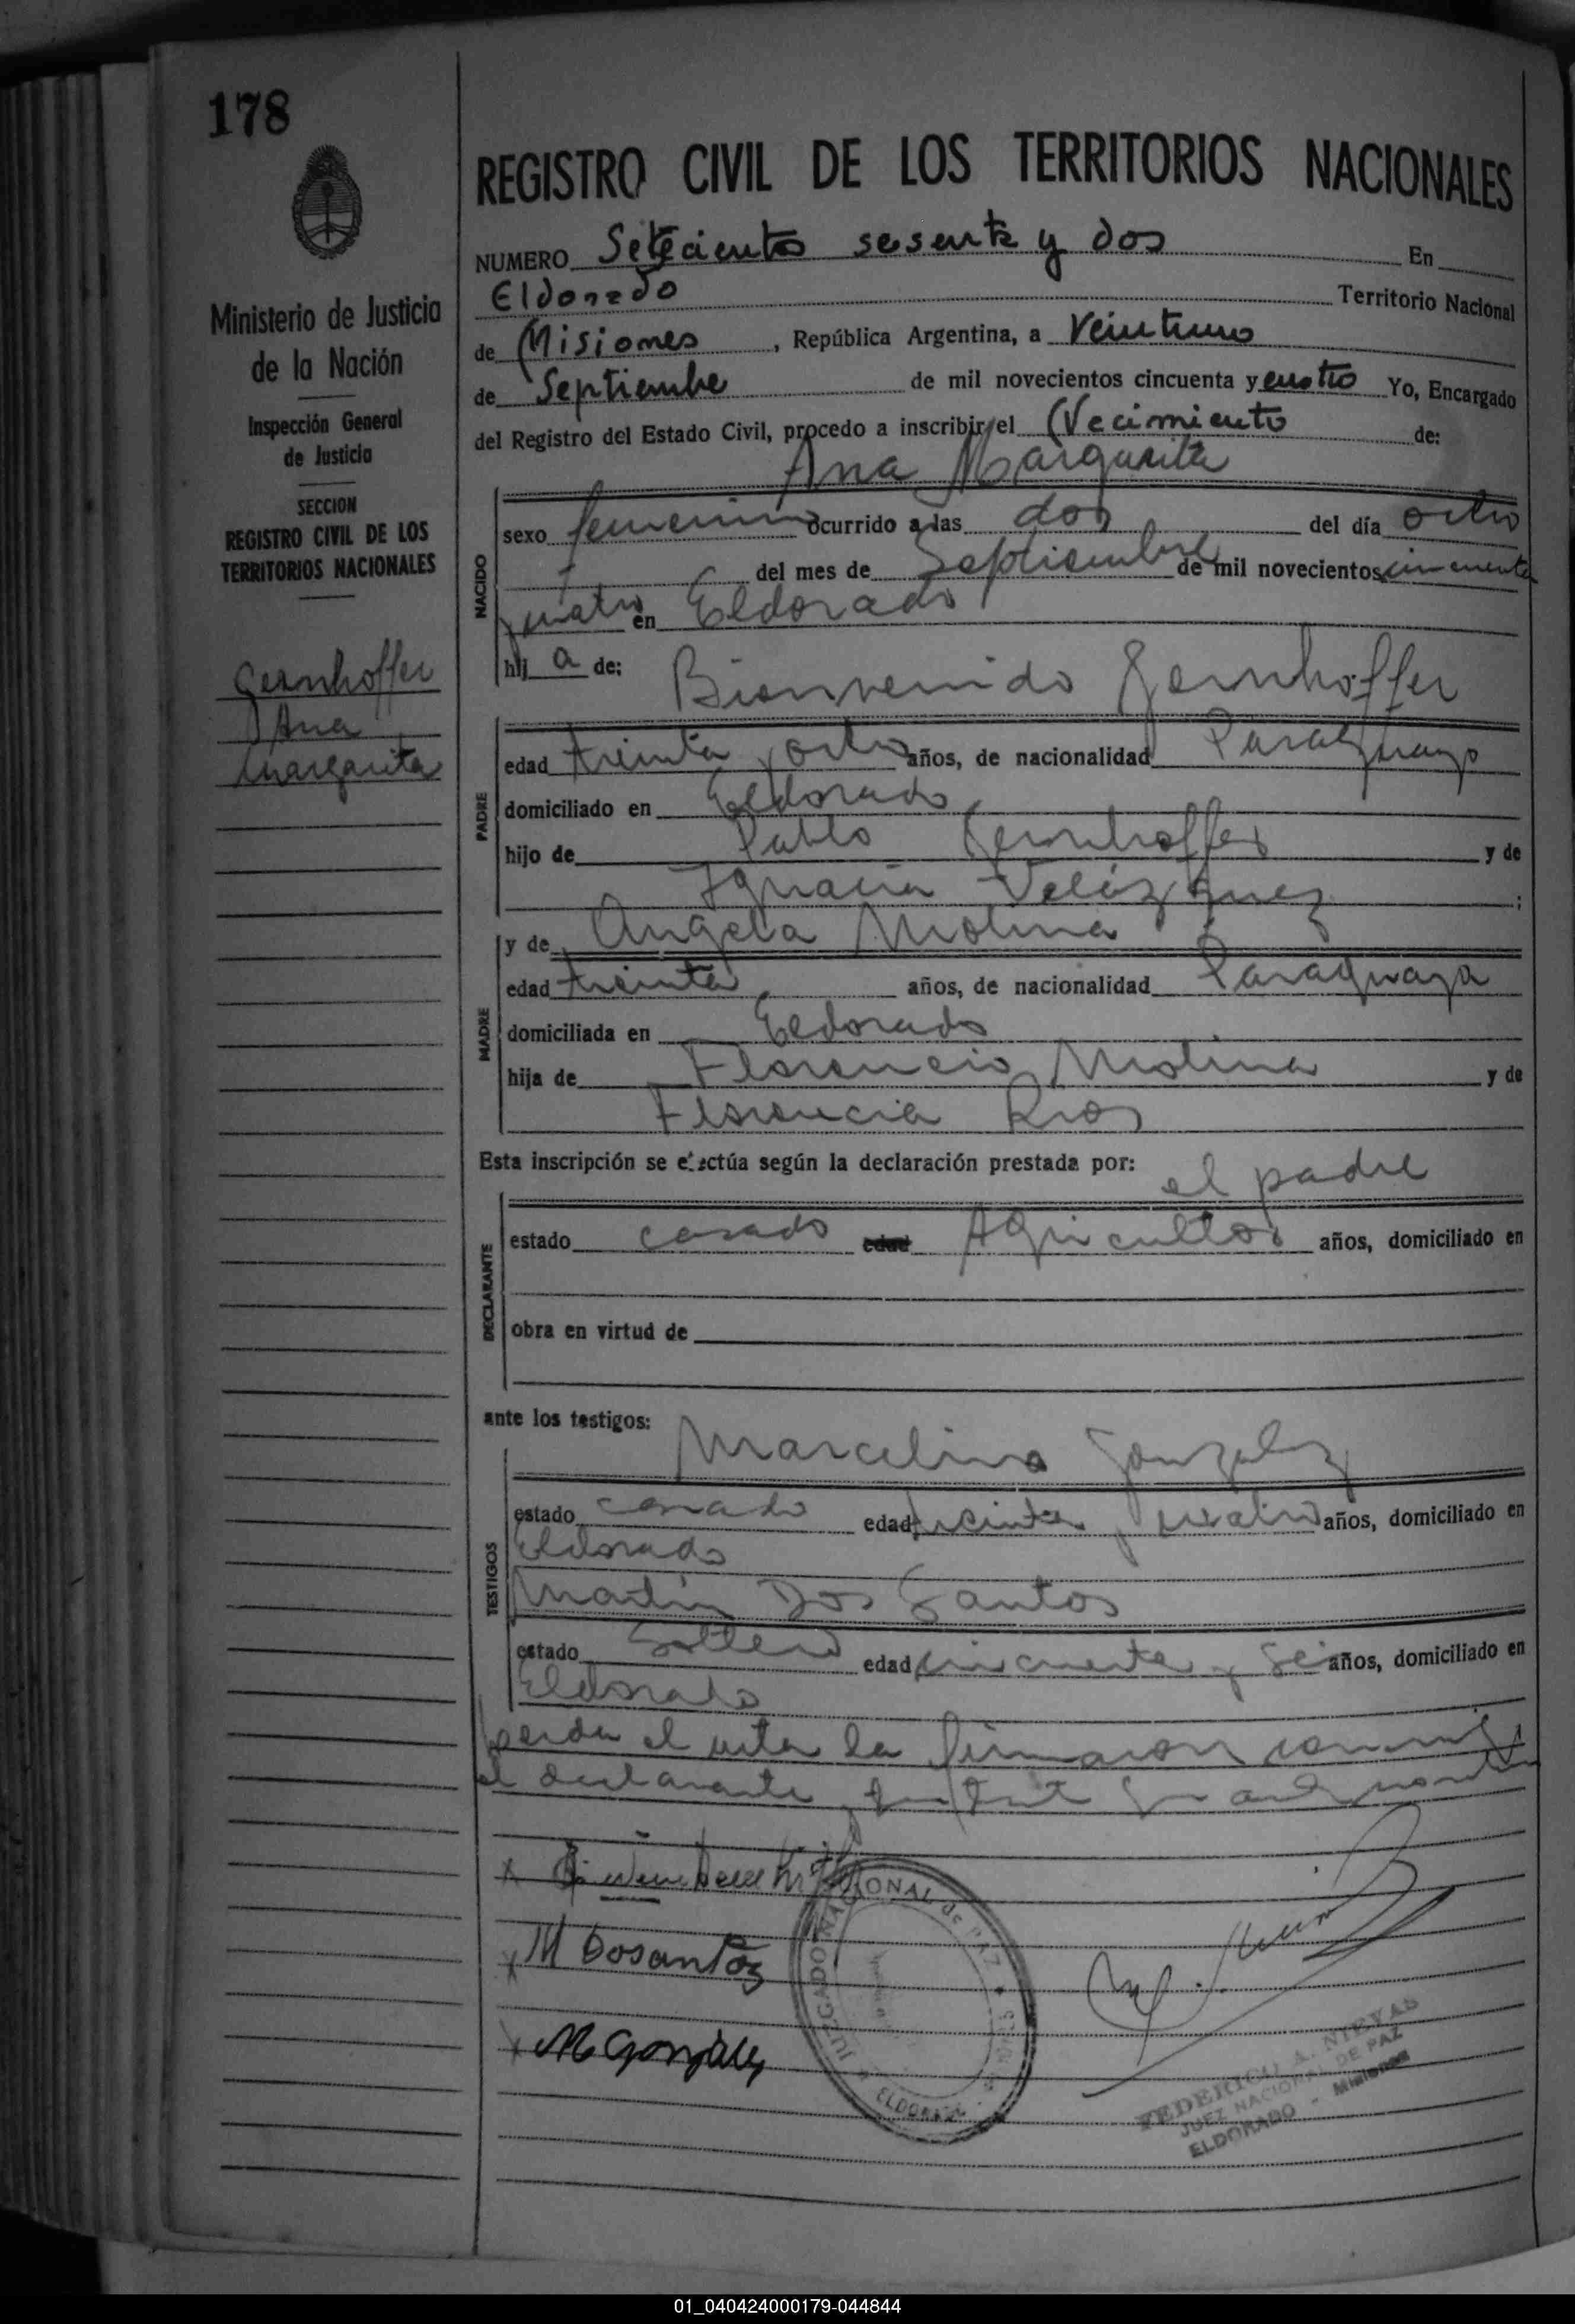 178
REGISTRO CIVIL DE LOS TERRITORIOS NACIONALES
NUMERO Setecientos sesenta y dos En
Eldorado Territorio Nacional
de Misiones, República Argentina, a Veintiuno
de Septiembre de mil novecientos cincuenta y cuatro Yo, Encargado
del Registro del Estado Civil, procedo a inscribir el Nacimiento de:
Ana Margarita
Ministerio de Justicia
de la Nación
Inspección General
de Justicia
SECCION
REGISTRO CIVIL DE LOS
TERRITORIOS NACIONALES
Gernhoffer
Ana
Margarita
NACIDO
sexo femenino ocurrido a las dos del día ocho
del mes de Septiembre de mil novecientos cincuenta
y cuatro en Eldorado
hij a de: Bienvenido Gernhoffer
PADRE
edad treinta y ocho años, de nacionalidad Paraguayo
domiciliado en Eldorado
hijo de Pablo Gernhoffer y de
Ignacia Velázquez ;
y de Angela Molina
MADRE
edad treinta años, de nacionalidad Paraguaya
domiciliada en Eldorado
hija de Florencio Molina y de
Florencia Rios
Esta inscripción se efectúa según la declaración prestada por: el padre
DECLARANTE
estado casado edad Agricultor años, domiciliado en
obra en virtud de
ante los testigos: Marcelino Gonzalez
TESTIGOS
estado casado edad treinta y cuatro años, domiciliado en
Eldorado
Martín Dos Santos
estado soltero edad cincuenta y seis años, domiciliado en
Eldorado
el acta la firmaron conmigo
el declarante
M Dosantos
M Gonzalez
JUZGADO NACIONAL de PAZ
ELDORADO
FEDERICO A. NIEVAS
JUEZ NACIONAL DE PAZ
ELDORADO - Misiones
01_040424000179-044844